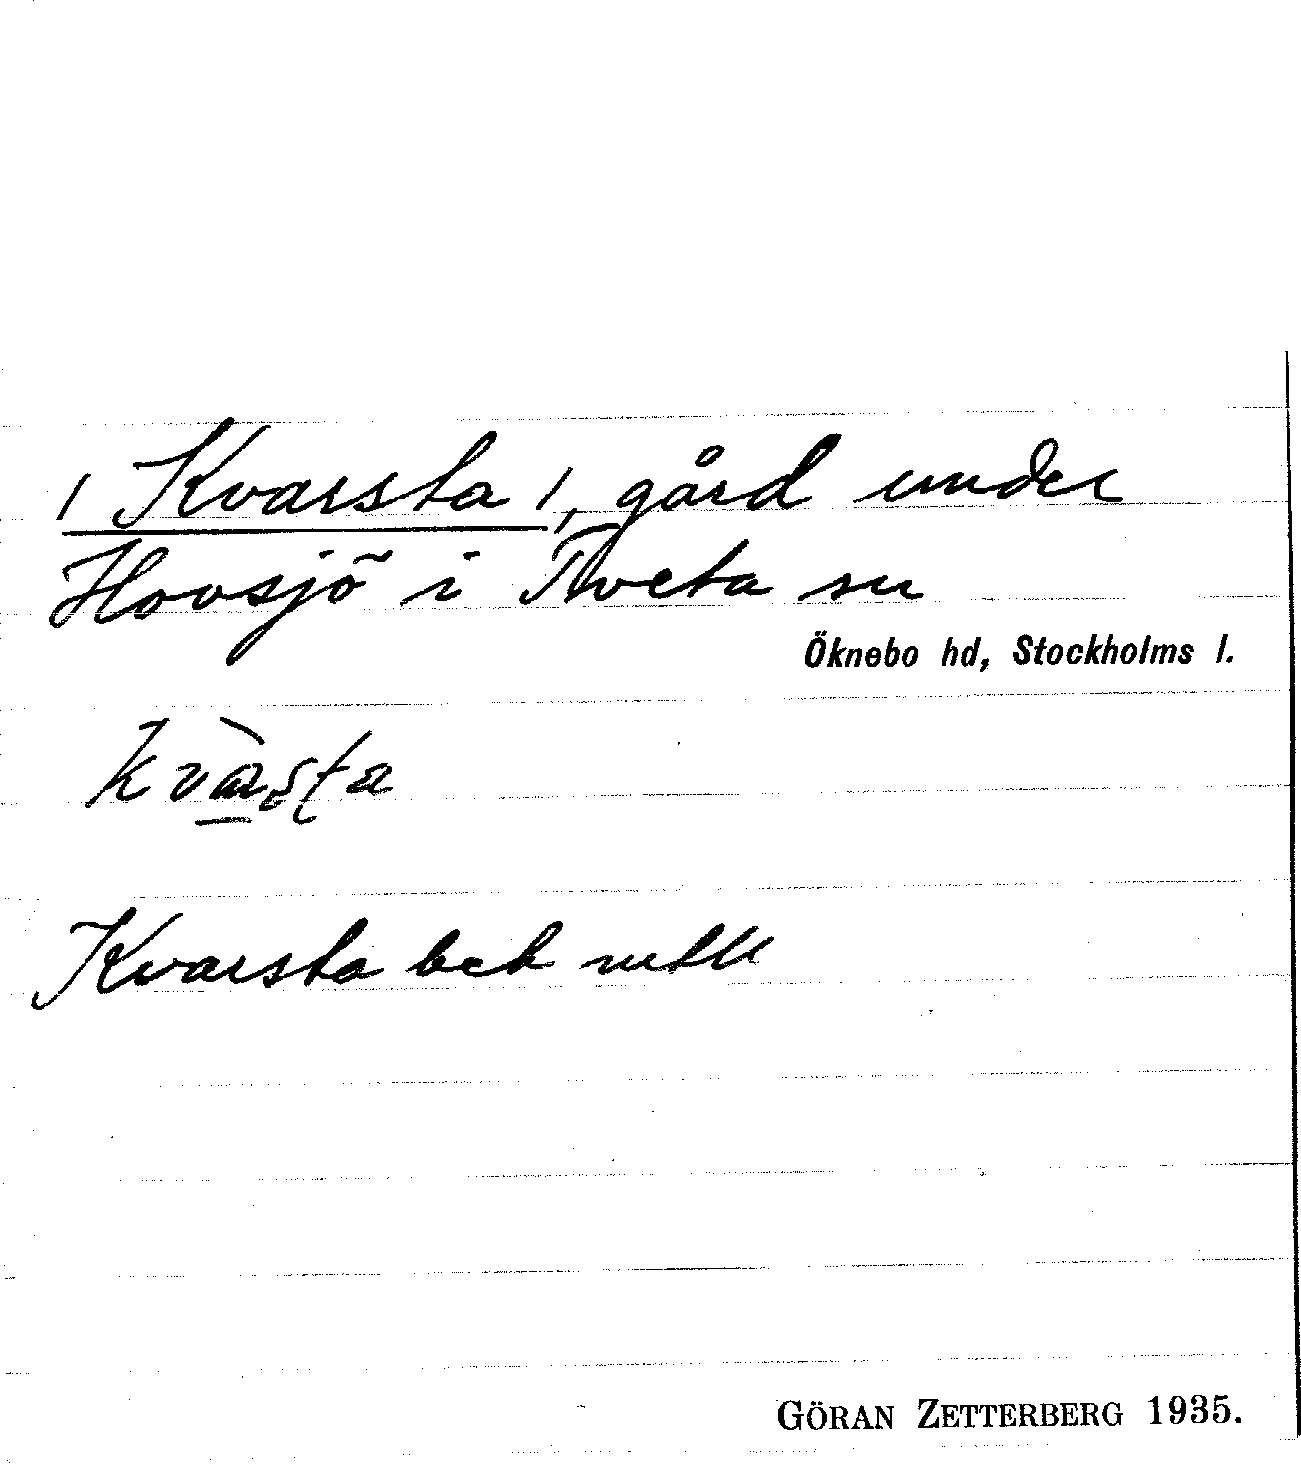 / Kvarsta /, gård under
Hovsjö i Tveta sn
Öknebo hd, Stockholms l.
Kvarsta bek
GÖRAN ZETTERBERG 1935.